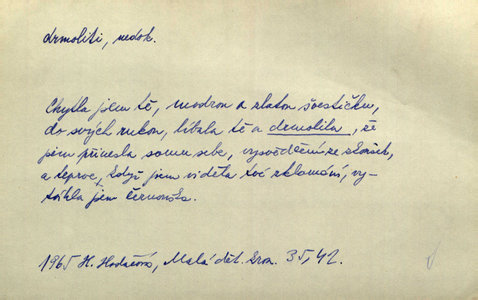 drmoliti, nedok.
Chytla jsem tě, modrou a zlatou šestičku,
do svých rukou, líbala tě a drmolila, že
jsem přinesla samu sebe, vysvědčení ze zkoušek,
a teprve, když jsem viděla tvé zklamání, vy-
táhla jsem černouška.
1965 H. Hodačová, Malá dět. Dron. 35, 42.